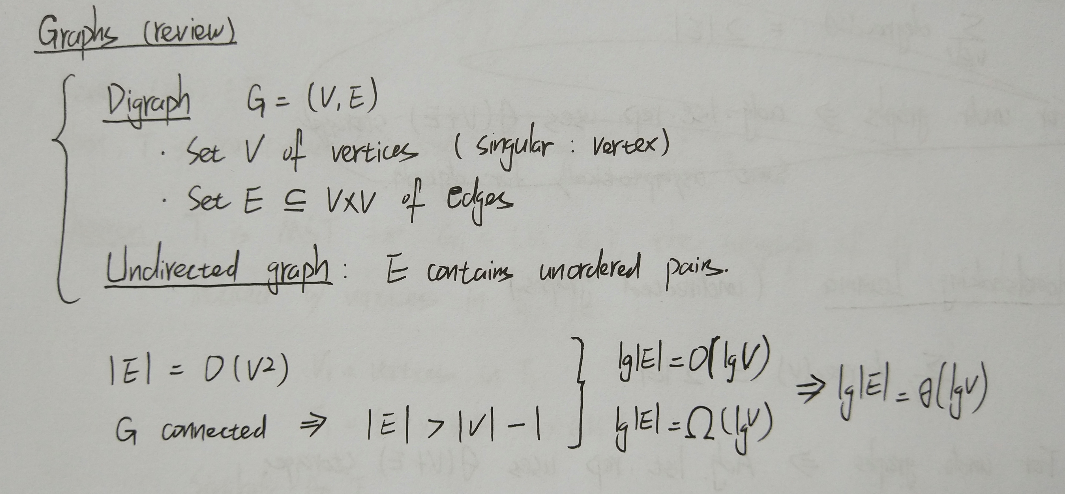 Graphs (review)
Digraph G = (V, E)
· Set V of vertices (singular : vertex)
· Set E ⊆ V×V of edges
Undirected graph : E contains unordered pairs.
|E| = O(V²) } lg|E| = O(lgV) ⇒ lg|E| = θ(lgV)
G connected ⇒ |E| > |V| - 1 lg|E| = Ω(lgV)